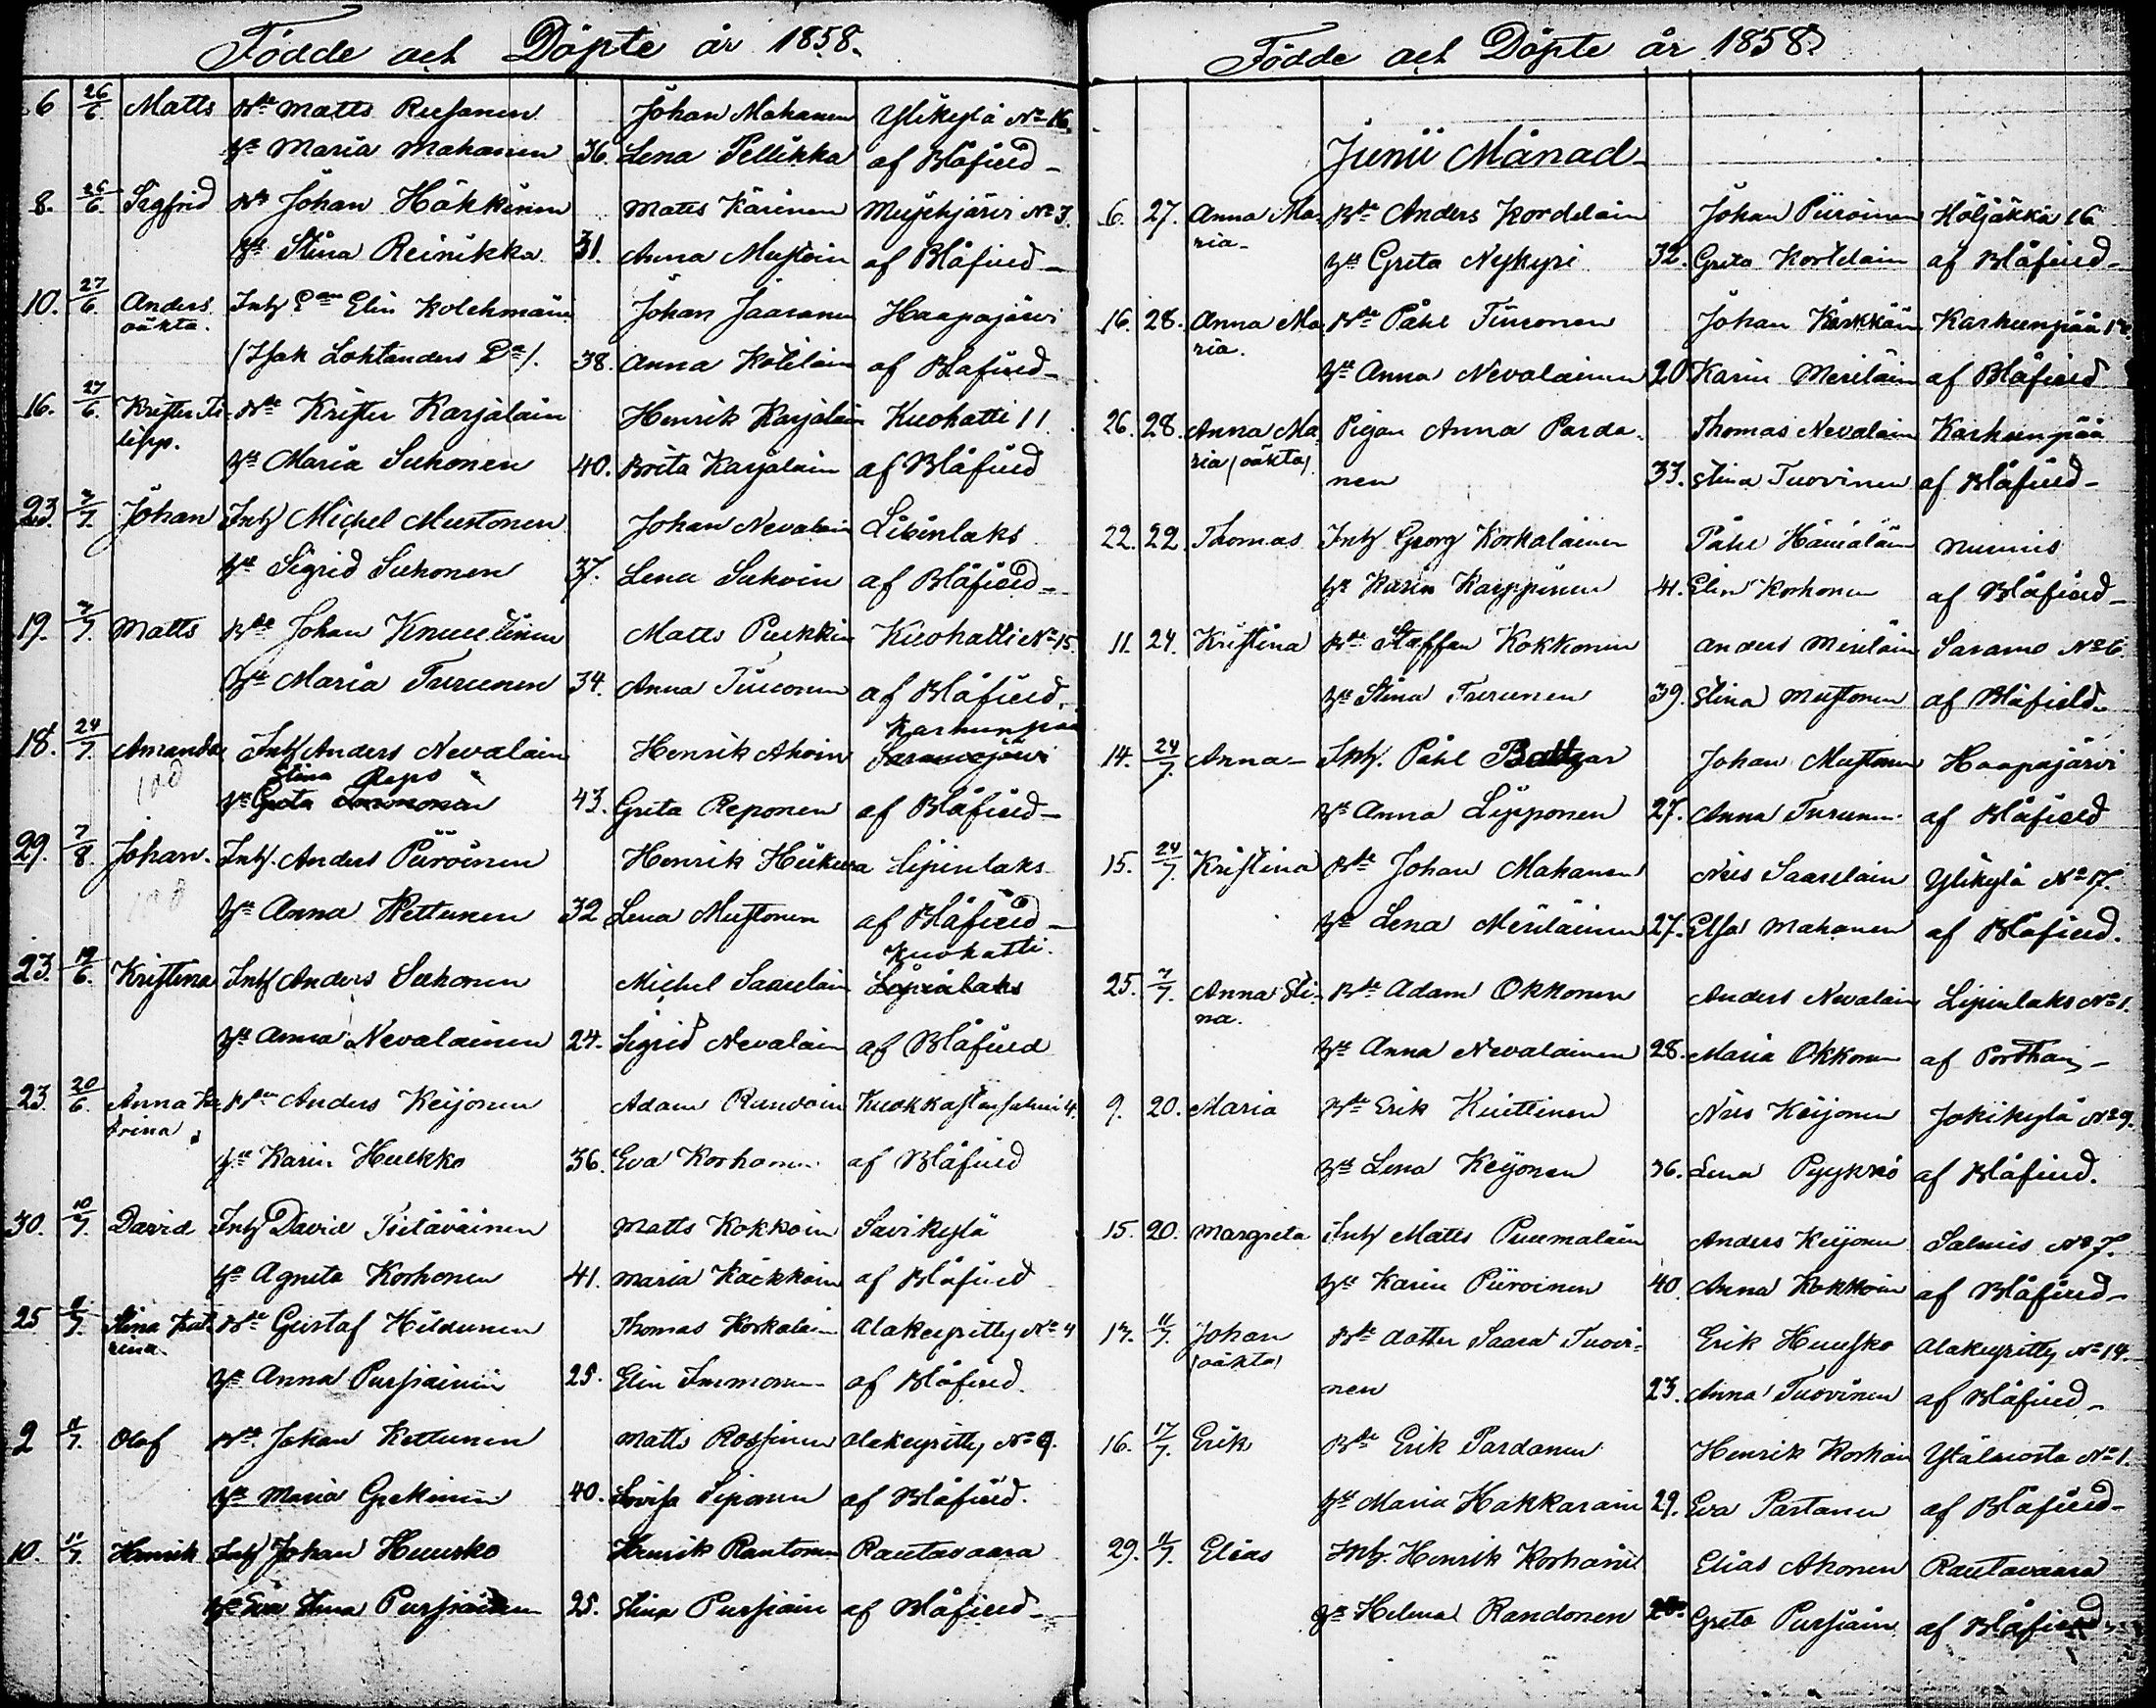 Födde och Döpte år 1858.
6 26/6. Matts Bde Matts Rusanen Johan Mahanen Ylikylä No 16.
Hu Maria Mahanen 36. Lena Pellikka af Blåfield
8. 26/6. Sigfrid Bde Johan Häkkinen Matts Kärinen Mujejärvi No 3.
Hu Stina Reinikka 31. Anna Mustoin af Blåfield
10. 27/6. Anders Inh Elin Kolehmain Johan Jaaranen Haapajärvi
oäkta.
(Isak Loktanders 38. Anna Kotilain af Blåfield
16. 27/6. Krister Fi Bde Krister Karjalain Henrik Karjalain Kuohatti 11.
lipp.
Hu Maria Suhonen 40. Brita Karjalain af Blåfield
23. 7/7. Johan Inh Michel Mustonen Johan Nevalain
Hu Sigrid Suhonen 37. Lena Suhoin af Blåfield
19. 7/7. Matts Bde Johan Knuutinen Matts Purkkin Kuohatti No 15.
Hu Maria Turunen 34. Anna Tiuronen af Blåfield.
Karhunpää
18. 24/7. Amanda Inh Anders Nevalain Henrik Ahoin Saramojärvi
Stina Repo
Hu Greta Immonen 43. Greta Reponen af Blåfield
29. 7/8. Johan. Inh. Anders Piiroinen Henrik Heikura Lipinlaks
Hu Anna Kettunen 32 Lena Mustonen af Blåfield
Kuohatti.
23. 19/6. Kristina Inh Anders Suhonen Michel Saarelain Lipinlaks
Hu Anna Nevalainen 24. Sigrid Nevalain af Blåfield
23. 20/6. Anna Ka Bde Anders Keijonen Adam Randoin
trina
Hu Karin Huskko 36. Eva Korhonen af Blåfield
30. 10/7. David Inh David Pietäväinen Matts Kokkoin Savikylä
Hu Agneta Korhonen 41. Maria Käckkäin af Blåfield
25 Stina Kat Bde Gustaf Hildunen Thomas Korkalain Alakeyritty No 4
rina.
Hu Anna Pursiainin 25. Elin Immonen af Blåfield.
2 11/7. Olof Bde. Johan Kettunen Matts Rossinen Alakeyritty No 9.
Hu Maria Grekinin 40. Lovisa Siponen af Blåfield.
10. 11/7 Henrik Inh Johan Huusko Henrik Rautonen Rautavaara
Hu Eva Stina Pursiainen 25. Stina Pursiain af Blåfield
Födde och Döpte år 1858.
Junii Månad
6. 27. Anna Ma Bde Anders Kordelain Johan Piiroinen Höljäkkä 16
ria
Hu Greta Nykyri 32. Greta Kortelain af Blåfield
16. 28. Anna Ma Bde Påhl Tiuronen Johan Kärkkäin Karhunpää
ria.
Hu Anna Nevalainen 20 Karin Meriläin af Blåfield
26. 28. Anna Ma Pigan Anna Parda Thomas Nevalain Karhunpää
ria (oäkta)
nen 33. Stina Tuovinen af Blåfield
22. 22. Thomas Inh Georg Korkalainen Påhl Hämäläin Nurmis
Hu Karin Karppinen 41. Elin Korhonen af Blåfield
11. 24. Kristina Bde Staffan Kokkonen Anders Meriläin Saramo No 6.
Hu Stina Turunen 39. Stina Mustonen af Blåfield.
14. 24/7. Anna Inh. Påhl Baltzar Johan Mustonen Haapajärvi
Hu Anna Lipponen 27. Anna Turunen af Blåfield
15. 24/7. Kristina Bde Johan Mahanen Nils Saarelain Ylikylä No 17.
Hu Lena Meriläinen 27. Elsa Mahanen af Blåfield.
25. 7/7. Anna Sti- Bde Adam Okkonen Anders Nevalain Lipinlaks No 1.
na.
Hu Anna Nevalainen 28. Maria Okkonen af Porthan
9. 20. Maria Bde Erik Kuittinen Nils Keijonen Jokikylä No 9.
Hu Lena Keijonen 36. Lena Pyykkö af Blåfield.
15. 20. Margreta Inh Matts Puumalain Anders Keijonen Salmis No 7.
Hu Karin Piiroinen 40. Anna Kokkoin af Blåfield
17. 11/7. Johan Bde dotter Saara Tuovi- Erik Huusko Alakeyritty No 14.
(oäkta)
nen 23. Anna Tuovinen af Blåfield
16. 17/7. Erik Bde Erik Pardanen Henrik Korhoin No 1.
Hu Maria Hakkarain 29. Eva Partanen af Blåfield
29. 11/7. Elias Inh. Henrik Korhoin Elias Ahonen Rautavaara
Hu Helena Randonen Greta Pursiain af Blåfield